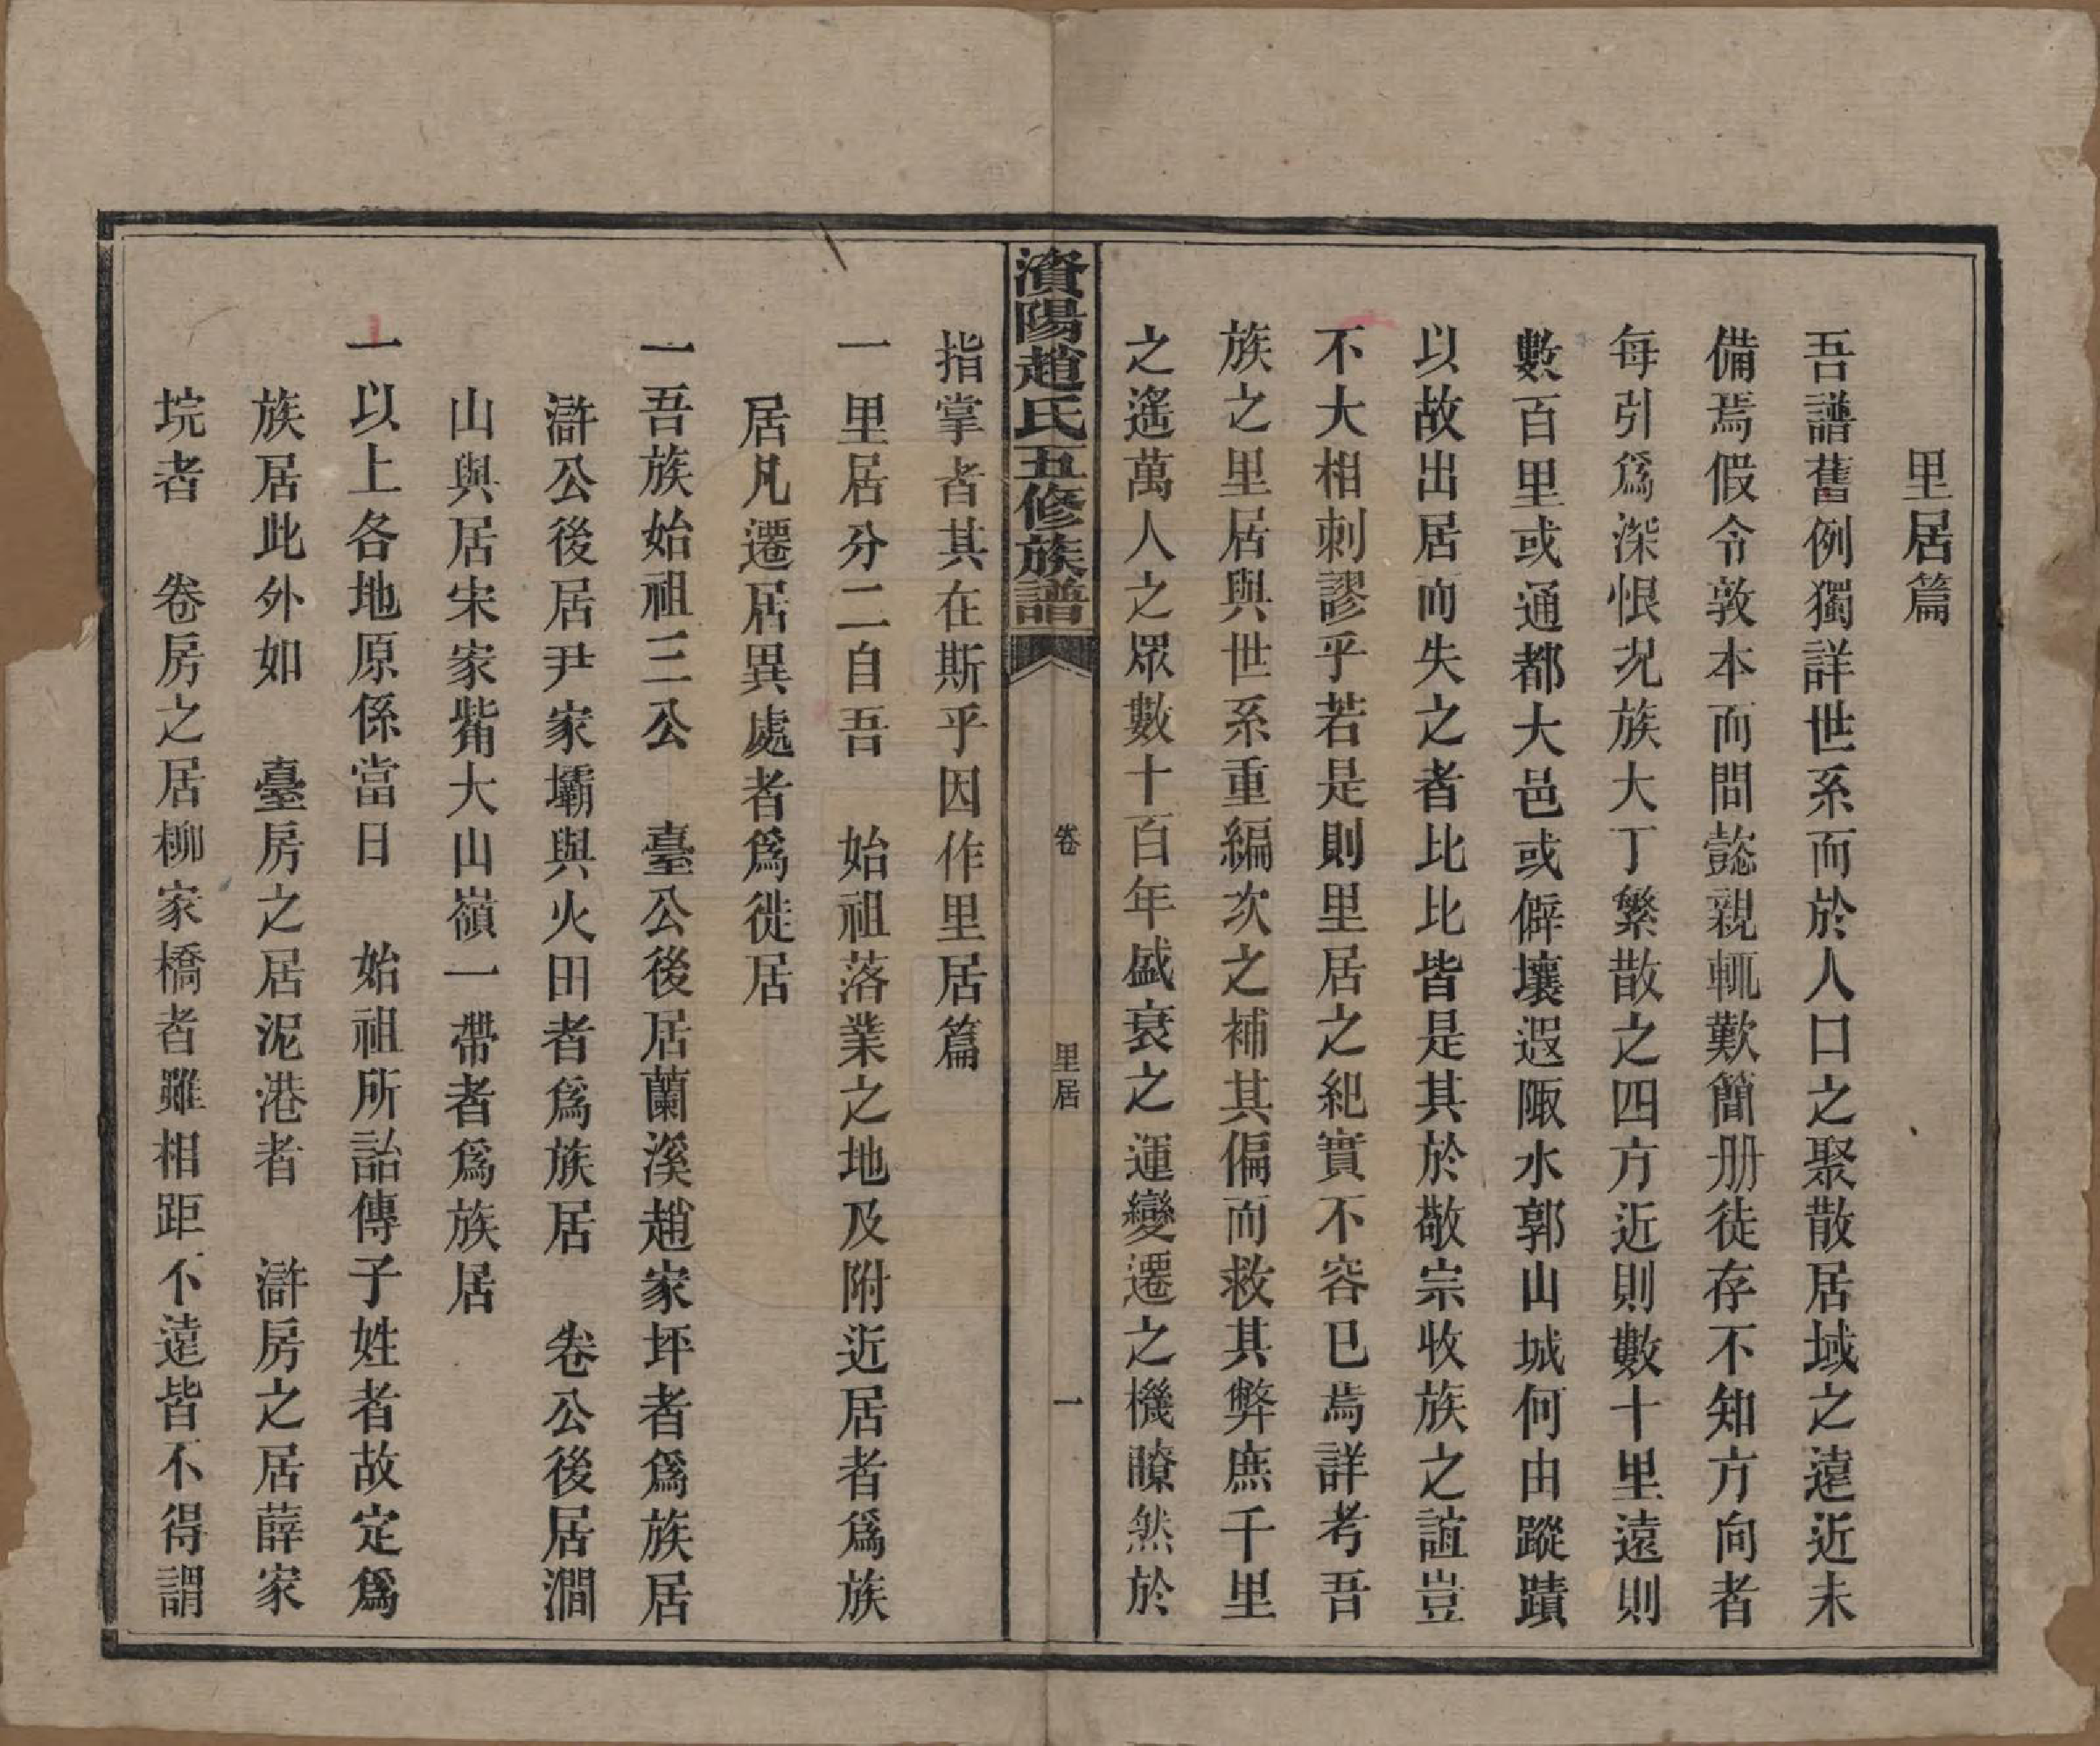 里居篇
吾譜舊例獨詳世系而於人口之聚散居域之遠近未
備焉假令敦本而問懿親輒歎簡册徒存不知方向者
每引爲深恨况族大丁繁散之四方近則數十里遠則
數百里或通都大邑或僻壤遐陬水郭山城何由蹤蹟
以故出居而失之者比比皆是其於敬宗收族之誼豈
不大相刺謬乎若是則里居之紀實不容已焉詳考吾
族之里居與世系重編次之補其偏而救其弊庶千里
之遙萬人之眾數十百年盛衰之運變遷之機瞭然於
濱陽趙氏五修族譜
卷　里居　一
指掌者其在斯乎因作里居篇
一里居分二自吾　始祖落業之地及附近居者爲族
居凡遷居異處者爲徙居
一吾族始祖三公　臺公後居蘭溪趙家坪者爲族居
滸公後居尹家壩與火田者爲族居　卷公後居澗
山與居宋家觜大山嶺一帶者爲族居
一以上各地原係當日　始祖所詒傳子姓者故定爲
族居此外如　臺房之居泥港者　滸房之居薛家
垸者　卷房之居柳家橋者雖相距不遠皆不得謂